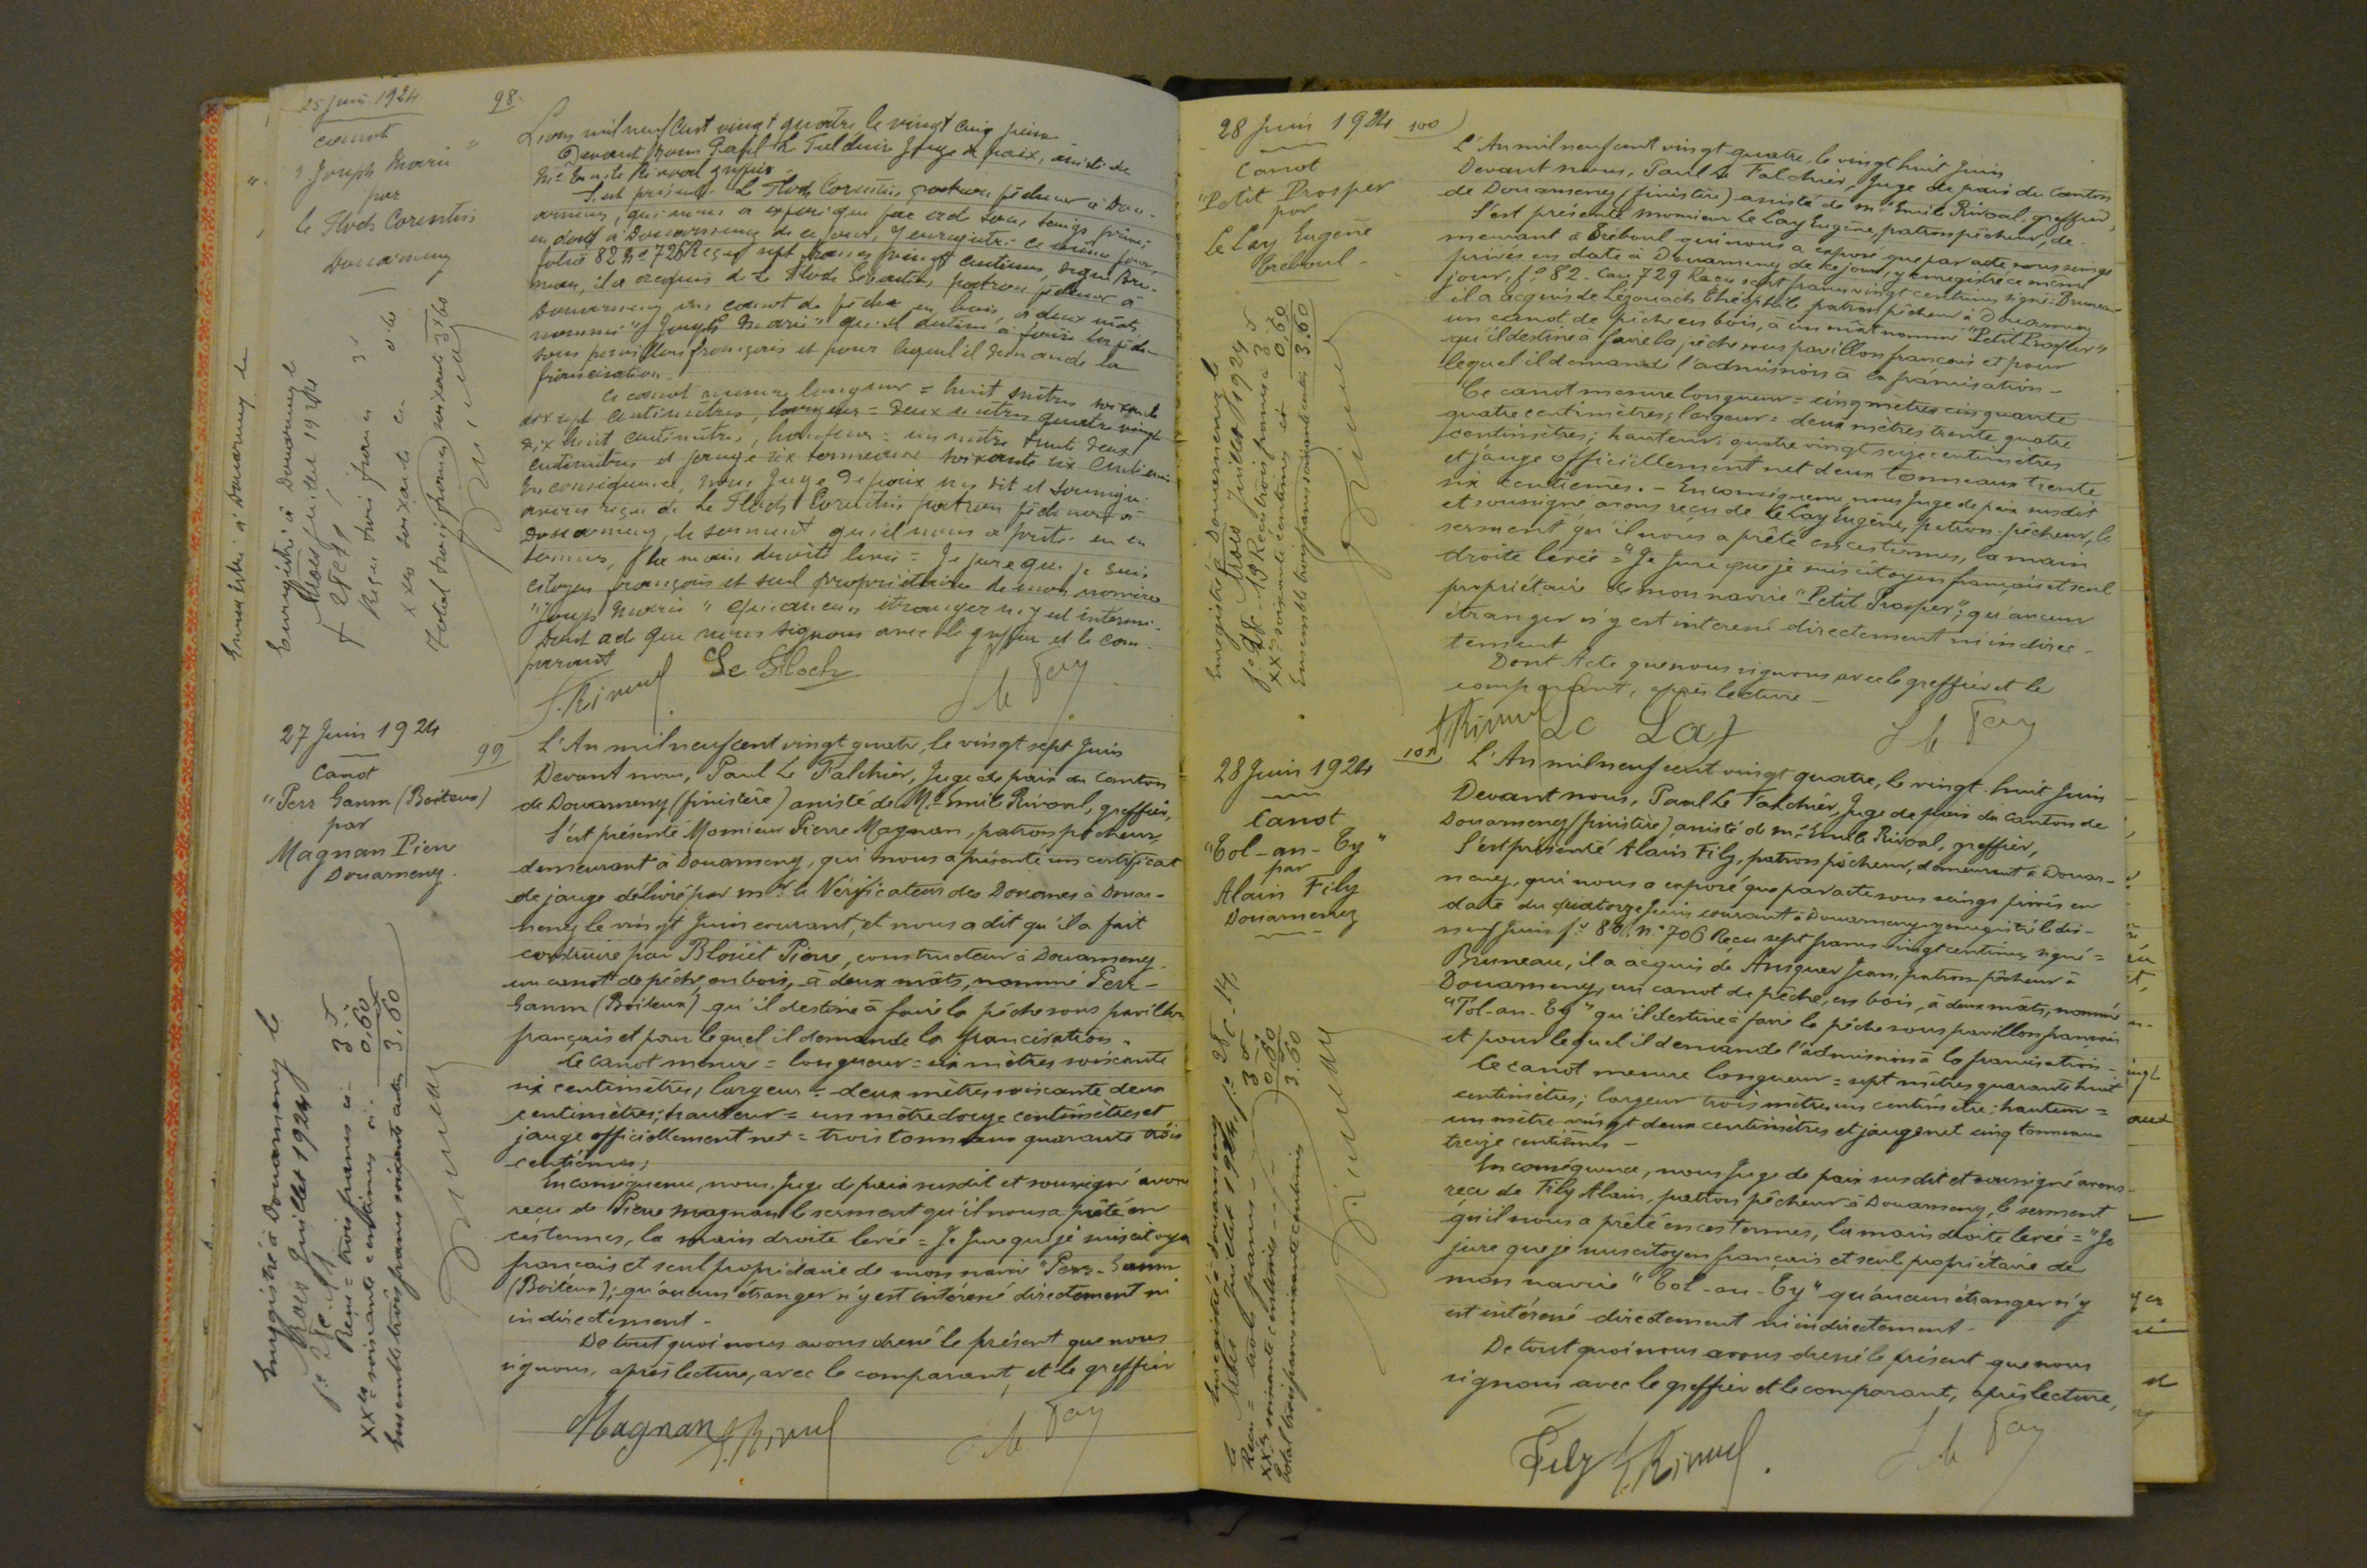 25 juin 1924
98
canot
"Joseph Marie"
par
Le Floch Corentin
Douarnenez
L'an mil neuf cent vingt quatre le vingt cinq juin
Devant nous Paul Le Falchier Juge de paix, assisté de
Me Emile Rivoal greffier
S'est présenté Le Floch Corentin, patron pêcheur à Douar-
nenez, qui nous a exposé que par acte sous seings privés
en date à Douarnenez de ce jour, y enregistré ce même jour,
folio 82 No 726 Reçu sept francs vingt centimes, signé Bru-
neau, il a acquis de Le Floch Sébastien, patron pêcheur à
Douarnenez un canot de pêche en bois, à deux mâts,
nommé "Joseph Marie" qu'il destine à faire la pêche
sous pavillon français et pour lequel il demande la
francisation.
Ce canot mesure longueur = huit mètres soixante
dix sept centimètres, largeur = deux mètres quatre vingt
dix huit centimètres, hauteur = un mètre trente deux
centimètres et jauge six tonneaux soixante six centièmes
En conséquence, nous Juge de paix sus dit et soussigné
avons reçu de Le Floch Corentin patron pêcheur à
Douarnenez, le serment qu'il nous a prêté en ces
termes, la main droite levée = Je jure que je suis
citoyen français et seul propriétaire de mon navire
"Joseph Marie" qu'aucun étranger n'y est intéressé.
Dont acte que nous signons avec le greffier et le com-
parant
E. Rivoal Le Floch P. Le Fay
Enregistré à Douarnenez le
Trois juillet 1924
f° 28 c 1
Reçu trois francs 3 "
xxes soixante c. 0 60
Total trois francs soixante 3 60
Bruneau
27 Juin 1924
99
Canot
"Perr Gamm (Boiteux)
par
Magnan Pierre
Douarnenez.
L'An mil neuf cent vingt quatre, le vingt sept Juin
Devant nous, Paul Le Falchier, Juge de paix du Canton
de Douarnenez (finistère) assisté de Me Emile Rivoal, greffier,
S'est présenté Monsieur Pierre Magnan, patron pêcheur,
demeurant à Douarnenez, qui nous a présenté un certificat
de jauge délivré par Mr. le Vérificateur des Douanes à Douar-
nenez le vingt Juin courant, et nous a dit qu'il a fait
construire par Blouët Pierre, constructeur à Douarnenez
un canot de pêche, en bois, à deux mâts, nommé Perr-
Gamm (Boiteux) qu'il destine à faire la pêche sous pavillon
français et pour lequel il demande la francisation.
Ce canot mesure = longueur = six mètres soixante
six centimètres, largeur = deux mètres soixante deux
centimètres; hauteur = un mètre douze centimètres et
jauge officiellement net = trois tonneaux quarante trois
centièmes;
En conséquence, nous, Juge de paix susdit et soussigné avons
reçu de Pierre Magnan le serment qu'il nous a prêté en
ces termes, la main droite levée = Je Jure que je suis citoyen
français et seul propriétaire de mon navire "Perr-Gamm
(Boiteux); qu'aucun étranger n'y est intéressé directement ni
indirectement.
De tout quoi nous avons dressé le présent que nous
signons, après lecture, avec le comparant, et le greffier
Magnan E. Rivoal P. Le Fay
Enregistré à Douarnenez le
Trois Juillet 1924
f° 28 c. 1
Reçu = trois francs ci - 3 "
xxes = soixante centimes ci - 0,60
Ensemble trois francs soixante centes 3,60
Bruneau
28 Juin 1924
100
Canot
"Petit Prosper
par
Le Lay Eugène
Tréboul -
L'An mil neuf cent vingt quatre, le vingt huit Juin
Devant nous, Paul Le Falchier, Juge de paix du Canton
de Douarnenez (finistère) assisté de Me Emile Rivoal, greffier,
S'est présenté monsieur Le Lay Eugène, patron pêcheur, de-
meurant à Tréboul qui nous a exposé que par acte sous seings
privés en date à Douarnenez de ce jour, y enregistré ce même
jour, f° 82 - Case 729 Reçu sept francs vingt centimes signé : Bruneau
il a acquis de Lezouach Théophile patron pêcheur à Douarnenez
un canot de pêche en bois, à un mât nommé "Petit Prosper"
qu'il destine à faire la pêche sous pavillon français et pour
lequel il demande l'admission à la francisation -
Ce canot mesure longueur = cinq mètres cinquante
quatre centimètres; largeur = deux mètres trente quatre
centimètres; hauteur : quatre vingt seize centimètres
et jauge officiellement net deux tonneaux trente
six centièmes. - En conséquence, nous Juge de paix susdit
et soussigné avons reçu de Le Lay Eugène, patron-pêcheur, le
serment qu'il nous a prêté en ces termes, la main
droite levée = "Je Jure que je suis citoyen français et seul
propriétaire de mon navire "Petit Prosper"; qu'aucun
étranger n'y est intéressé directement ni indirec-
tement
Dont Acte que nous signons avec le greffier et le
comparant, après lecture -
E. Rivoal Le Lay P. Le Fay
Enregistré à Douarnenez le
Trois Juillet 1924
f° 28 - 19 Reçu trois francs 3 "
xxes soixante centimes ci 0,60
Ensemble trois francs soixante centes 3.60
Bruneau
28 Juin 1924
101
Canot
"Tol-an-Ty"
par
Alain Fily
Douarnenez
L'An mil neuf cent vingt quatre, le vingt-huit Juin
Devant nous, Paul Le Falchier, Juge de paix du Canton de
Douarnenez (finistère) assisté de Me Emile Rivoal, greffier,
S'est présenté Alain Fily, patron pêcheur, demeurant à Douar-
nenez, qui nous a exposé que par acte sous seings privés en
date du quatorze Juin courant à Douarnenez y enregistré le dix-
neuf Juin f° 80. n° 706 Reçu sept francs vingt centimes, signé =
Bruneau, il a acquis de Ansquer Jean, patron pêcheur à
Douarnenez, un canot de pêche, en bois, à deux mâts, nommé
"Tol-an-Ty" qu'il destine à faire la pêche sous pavillon français
et pour lequel il demande l'admission à la francisation -
Ce canot mesure longueur = sept mètres quarante huit
centimètres; largeur trois mètres un centimètre; hauteur =
un mètre vingt deux centimètres et jauge net cinq tonneaux
treize centièmes -
En conséquence, nous Juge de paix susdit et soussigné avons
reçu de Fily Alain, patron pêcheur à Douarnenez, le serment
qu'il nous a prêté en ces termes, la main droite levée = "Je
jure que je suis citoyen français et seul propriétaire de
mon navire "Tol-an-Ty" qu'aucun étranger n'y
est intéressé directement ni indirectement -
De tout quoi nous avons dressé le présent que nous
signons avec le greffier et le comparant, après lecture,
Fily E. Rivoal P. Le Fay
Enregistré à Douarnenez
le Trois Juillet 1924, f° 28 c. 14
Reçu = trois francs - 3 "
xxes soixante centimes - 0.60
Total trois francs soixante centimes 3.60
Bruneau